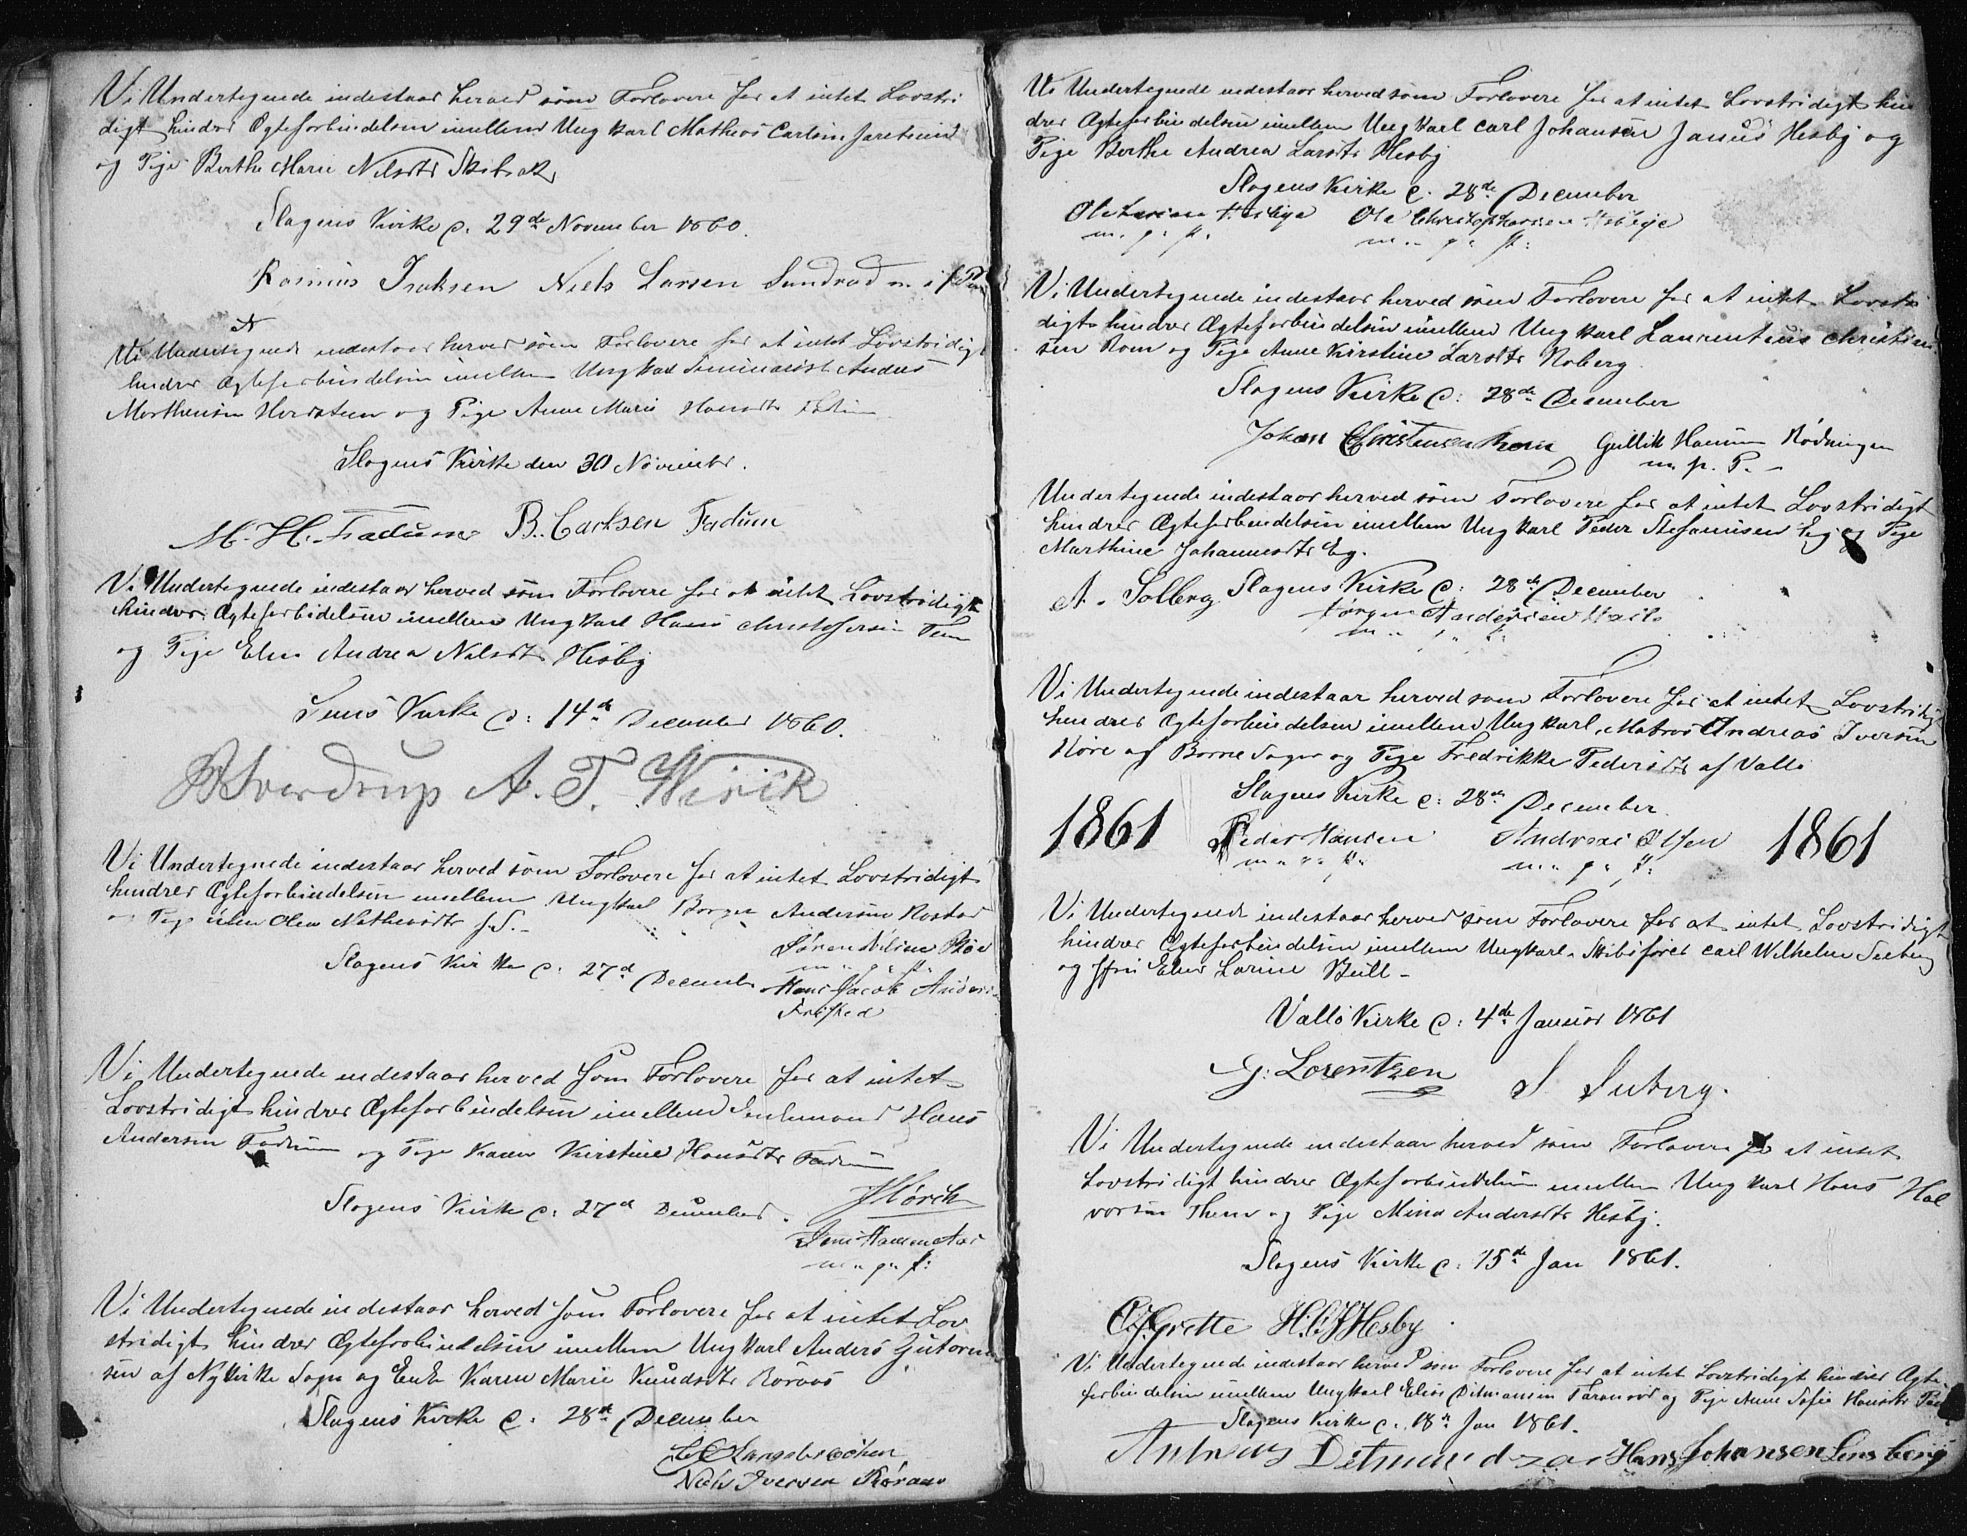 Vi Undertegnede indestaar herved som Forlovere for at intet Lovstri
digt hindrer Ægteforbindelsen imellem Ungkarl Matheos Carlsen
og Pige Berthe Marie Nilsdtr
Slagens Kirke d: 29de November 1860.
Rasmus Isaksen Niels Larsen Sundrød m. i f. Pen
Vi Undertegnede indestaar herved som Forlovere for at intet Lovstridigt
hindrer Ægteforbindelsen imellem Ungkarl Seminarist Anders
Morthensen og Pige Anne Marie Hansdtr
Slagens Kirke den 30 November.
M. H. Fadum B. Carlsen Fadum
Vi Undertegnede indestaar herved som Forlovere for at intet Lovstridigt
hindrer Ægteforbidelsen imellem Ungkarl Hans Christofersen Tem
og Pige Elen Andrea Nilsdtr Hesby
Sems Kirke d: 14de December 1860.
Sverdrup A. T. Wiiik
Vi Undertegnede indestaar herved som Forlovere for at intet Lovstridigt
hindrer Ægteforbindelsen imellem Ungkarl Borger Andersen Rostad
og Pige Elen Olea Mathisdtr
Slagens Kirke d: 27d December
Søren Nilsen Bøe
m. p. p.
Hans Jacob Anders
Vi Undertegnede indestaar herved som Forlovere for at intet
Lovstridigt hindrer Ægteforbindelsen imellem Enkemand Hans
Andersen Fadum og Pige Karen Kirstine Hansdtr Fadum
Slagens Kirke d: 27d December.
Hørch
Jens Hansen Aas
m. p. p:
Vi Undertegnede indestaar herved som Forlovere for at intet Lov
stridigt hindrer Ægteforbindelsen imellem Ungkarl Anders Gutorm
sen af Nykirke Sogn og Enke Karen Marie Knudsdtr Røraas
Slagens Kirke d: 28de December
Langebrochen
Niels Iversen Røraas
Vi Undertegnede indestaar herved som Forlovere for at intet Lovstridigt hin
drer Ægteforbindelsen imellem Ungkarl Carl Johansen Hesby og
Pige Berthe Andrea Larsdtr Hesby
Slagens Kirke d: 28de December
Ole Larsen Ole Christophersen
m. p. p. m. p. p:
Vi Undertegnede indestaar herved som Forlovere for at intet Lovstri
digt hindrer Ægteforbindelsen imellem Ungkarl Laurentius Christian
sen Rom og Pige Anne Kirstine Larsdtr Roberg
Slagens Kirke d: 28de December
Johan Christensen Rom Gullik Hansen Rødningen
m. p. P.
Undertegnede indestaar herved som Forlovere for at intet Lovstridigt
hindrer Ægteforbindelsen imellem Ungkarl Peder Stefanusen Eg og Pige
Marthine Johannesdtr Eg.
Slagens Kirke d: 28de December
A. Solberg Jørgen Andersen
Vi Undertegnede indestaar herved som Forlovere for at intet Lovstridigt
hindrer Ægteforbindelsen imellem Ungkarl, Matros Andreas Iversen
Høre af Borre Sogn og Pige Fredrikke Pedersdtr af Vallø
Slagens Kirke d: 28de December
1861 Peder Hansen Andreas Olsen 1861
m. p. p. m. p. p:
Vi Undertegnede indestaar herved som Forlovere for at intet Lovstridigt
hindrer Ægteforbindelsen imellem Ungkarl, Skibsfører Carl Wilhelm Seeberg
og Jfru Elen Larine Bull
Vallø Kirke d: 4de Januar 1861
G. Lorentzen S. Seeberg.
Vi Undertegnede indestaar herved som Forlovere for at intet
Lovstridigt hindrer Ægteforbindelsen imellem Ungkarl Hans Hal
vorsen Them og Pige Mina Andersdtr Hesby.
Slagens Kirke d: 15de Jan 1861.
Grette H. Hesby
Vi Undertegnede indestaar herved som Forlovere for at intet Lovstridigt hindrer Ægte
forbindelsen imellem Ungkarl Elias Ditmansen og Pige Anne Sofie Hansdtr
Slagens Kirke d: 18de Jan 1861.
Antreas Detmandzon Hans Johansen Lensberg